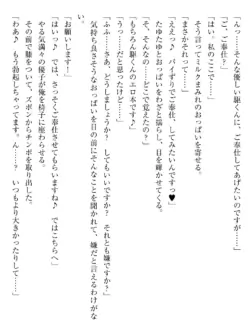 「……そんな優しい駆くんに、ご奉仕してあげたいのですが」
「ご、ご奉仕……？」
「はい、私のここで……」
そう言ってミルクまみれのおっぱいを寄せる。
「ええ♪　パイズリでご奉仕、してみたいんですっ♥」
たゆたゆとおっぱいをわざと揺らし、目を輝かせてくる。
「そ、そんなの……どこで覚えたの？」
「もちろん駆くんのエロ本で」
「うっ……だと思ったけど……」
「ふふ……さあ、どうしましょうか？　それとも嫌ですか？」
気持ち良さそうなおっぱいを目の前にそんなことを聞かれて、嫌だと言えるわけがない。
「お願いします！」
「はい♪　では、さっそくご奉仕させてもらいますね♪　ではこちらへ」
やる気満々の優子が俺を椅子に座わらせる。
その前で膝をついて、ズボンからチンポを取り出した。
「あ♪　もう勃起しちゃってます……ん〜？　いつもより大きかったりして……」